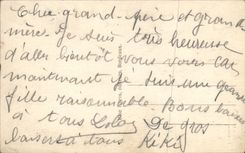 Cher grand-père et grand
mère Je suis très heureuse
d'aller bientôt vous voir car
maintenant je suis une grande
fille raisonnable. Bons baisers
à tous De gros
baisers à tous Kiki